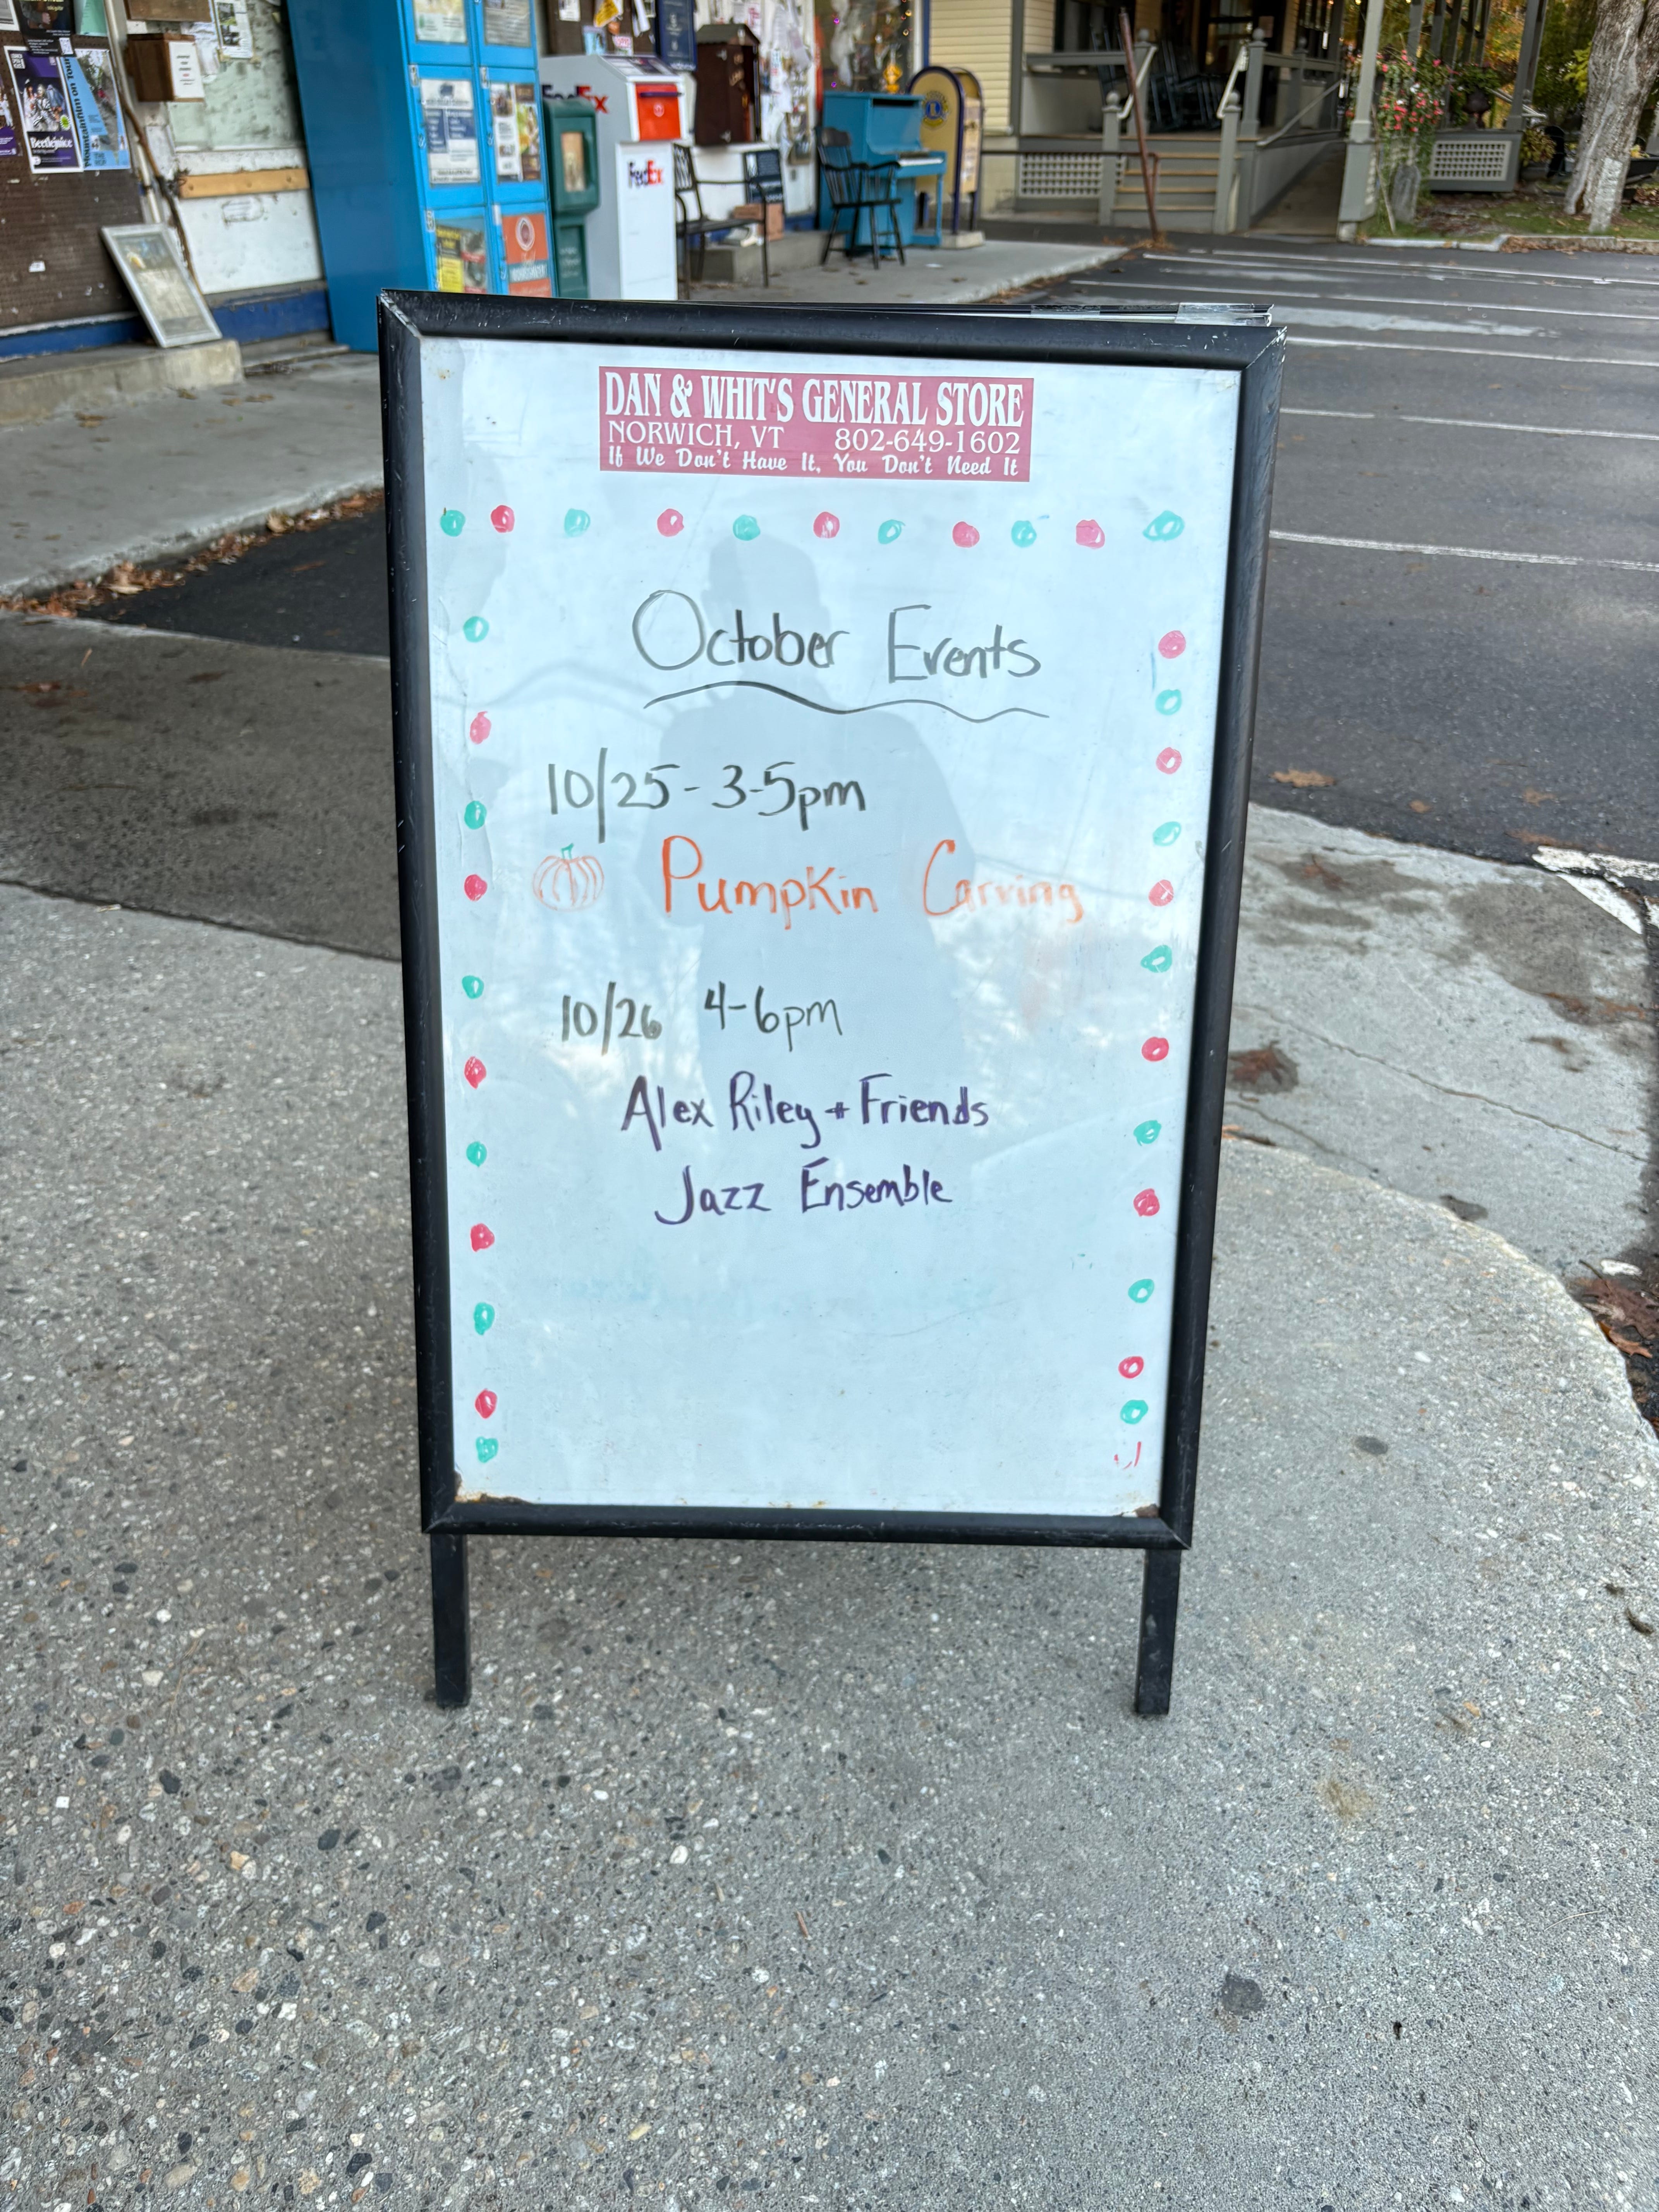 Beetlejuice
Mountainfilm on Tour
FedEx
FedEx
DAN & WHIT'S GENERAL STORE
NORWICH, VT 802-649-1602
If We Don't Have It, You Don't Need It
October Events
10/25 - 3-5pm
Pumpkin Carving
10/26 4-6pm
Alex Riley + Friends
Jazz Ensemble